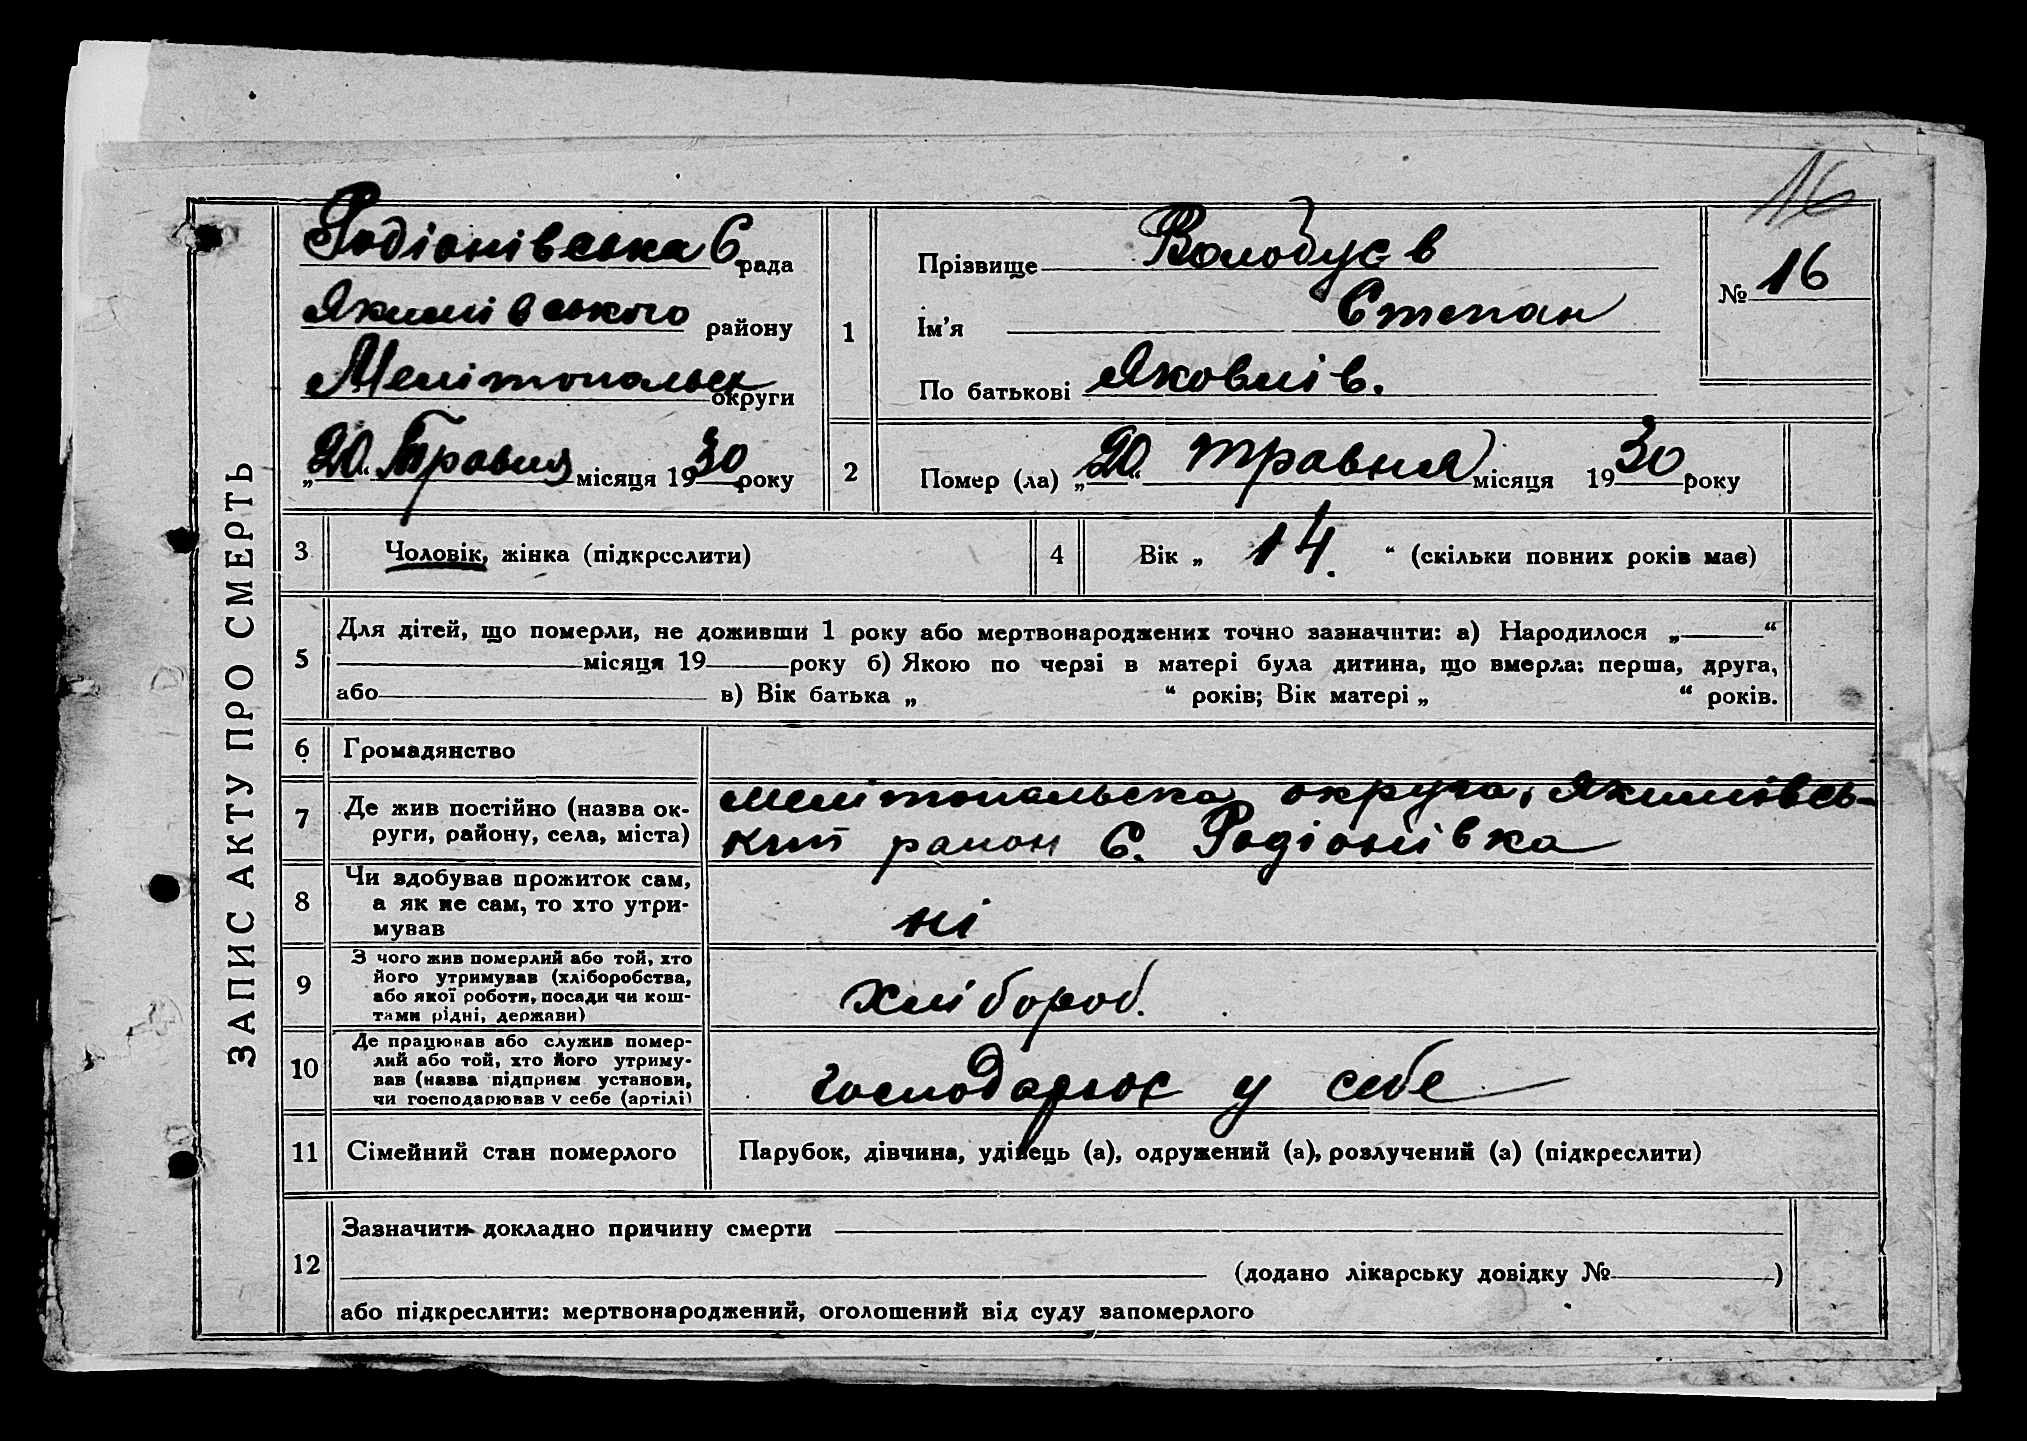 16
ЗАПИС АКТУ ПРО СМЕРТЬ
Родіонівська С рада
Якимівського району
Мелітопальськ округи
„20“ Травня місяця 1930 року
1
Прізвище Волобуєв
Ім'я Степан
По батькові Яковлів.
№ 16
2
Помер (ла) „20“ травня місяця 1930 року
3 Чоловік, жінка (підкреслити)
4 Вік „14.“ (скільки повних років має)
5
Для дітей, що померли, не доживши 1 року або мертвонароджених точно зазначити: а) Народилося „ “
місяця 19 року б) Якою по черзі в матері була дитина, що вмерла: перша, друга,
або в) Вік батька „ “ років; Вік матері „ “ років.
6 Громадянство
7
Де жив постійно (назва ок-
руги, району, села, міста)
Мелітопальська округа, Якимівсь-
кий район С. Родіонівка
8
Чи здобував прожиток сам,
а як не сам, то хто утри-
мував
ні
9
З чого жив померлий або той, хто
його утримував (хліборобства,
або якої роботи, посади чи кош-
тами рідні, держави)
хлібороб.
10
Де працював або служив помер-
лий або той, хто його утриму-
вав (назва підприєм. установи,
чи господарював у себе (артілі)
господарює у себе
11 Сімейний стан померлого
Парубок, дівчина, удівець (а), одружений (а), розлучений (а) (підкреслити)
12
Зазначити докладно причину смерти
(додано лікарську довідку № )
або підкреслити: мертвонароджений, оголошений від суду запомерлого